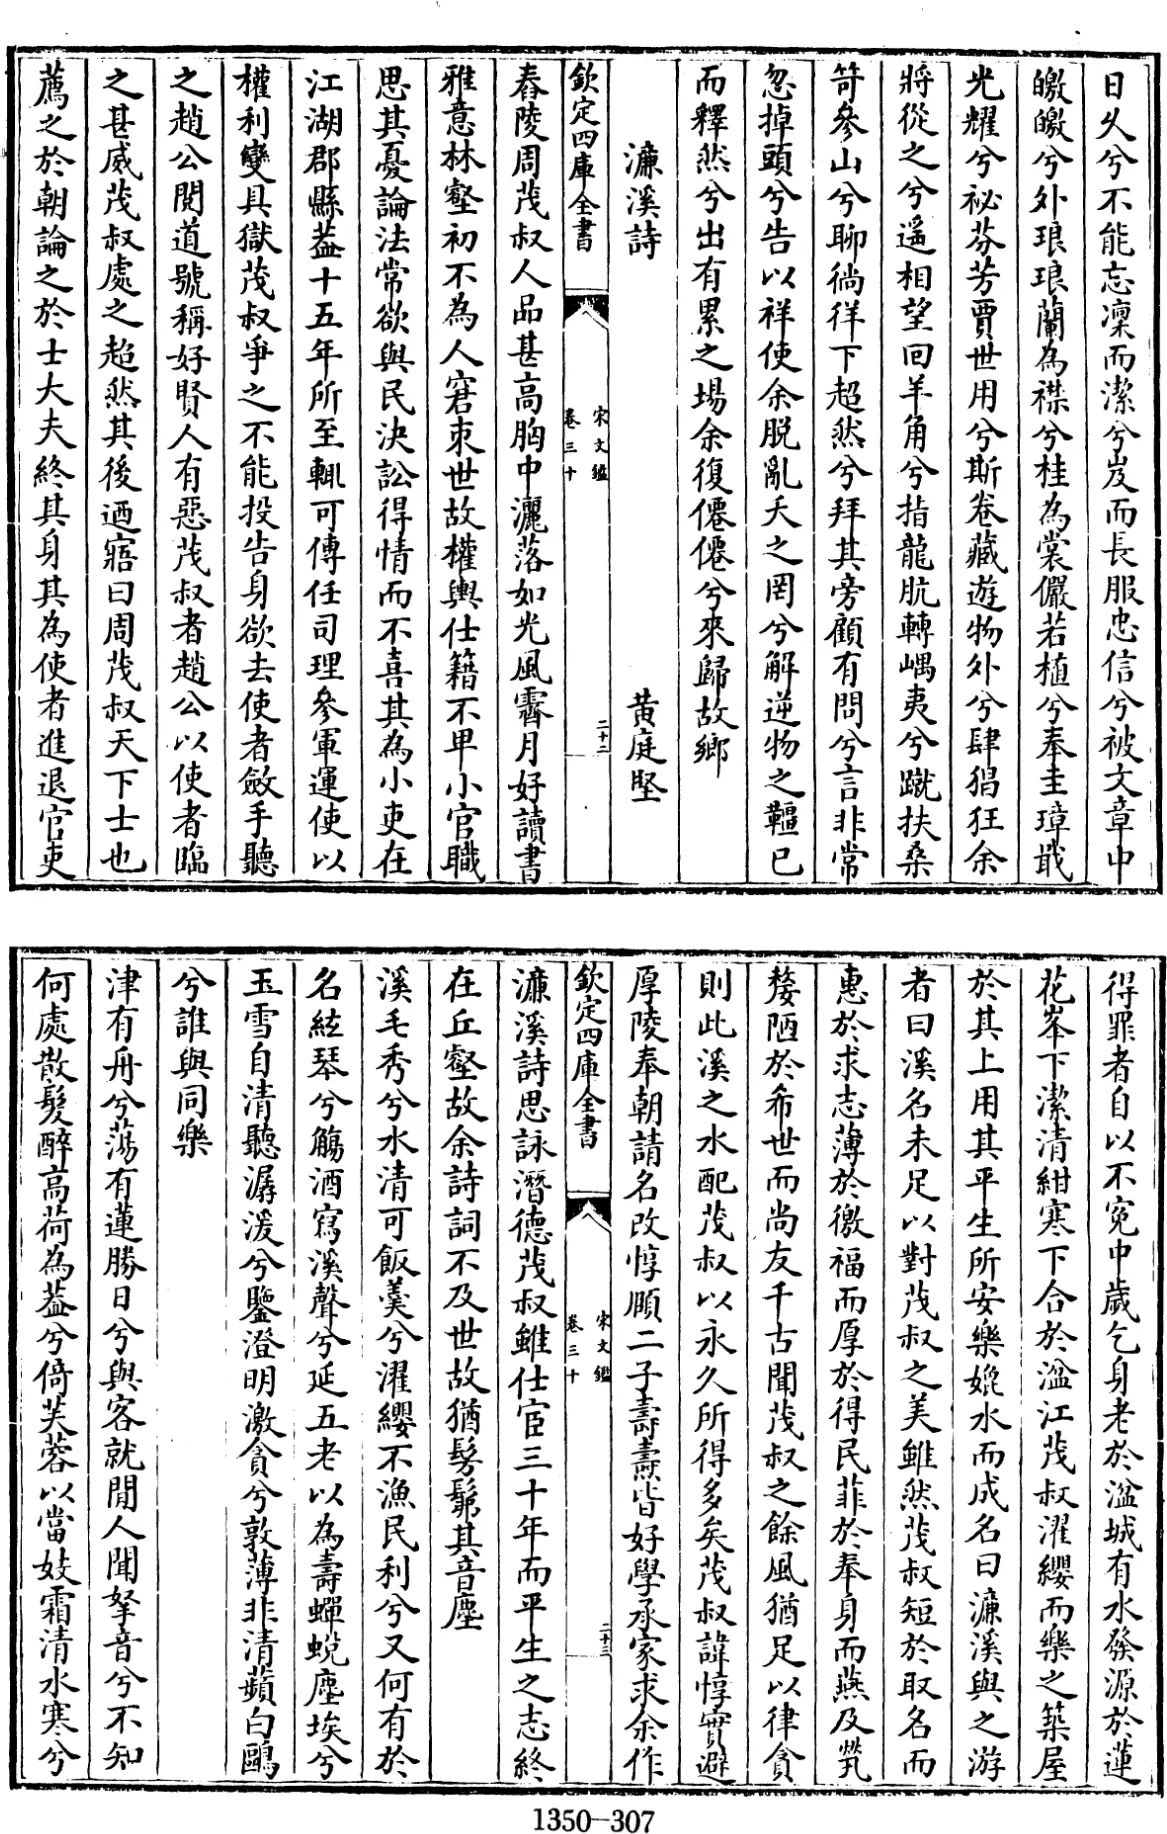 日久兮不能忘凜而潔兮岌而長服忠信兮被文章中
皦皦兮外琅琅蘭為襟兮桂為裳儼若植兮奉圭璋戢
光耀兮祕芬芳賈世用兮斯卷藏遊物外兮肆猖狂余
將從之兮遥相望回羊角兮指龍肮轉嵎夷兮蹴扶桑
笴參山兮聊徜徉下超然兮拜其旁顧有問兮言非常
忽掉頭兮告以祥使余脱亂夭之罔兮解逆物之韁已
而釋然兮出有累之場余復僊僊兮來歸故鄉
濂溪詩 黄庭堅
欽定四庫全書 宋文鑑 卷三十 二十二
舂陵周茂叔人品甚高胸中灑落如光風霽月好讀書
雅意林壑初不為人窘束世故權輿仕籍不卑小官職
思其憂論法常欲與民決訟得情而不喜其為小吏在
江湖郡縣葢十五年所至輒可傳任司理參軍運使以
權利變具獄茂叔爭之不能投告身欲去使者斂手聽
之趙公閱道號稱好賢人有惡茂叔者趙公以使者臨
之甚威茂叔處之超然其後迺寤曰周茂叔天下士也
薦之於朝論之於士大夫終其身其為使者進退官吏
得罪者自以不寃中歲乞身老於湓城有水發源於蓮
花峯下潔清紺寒下合於湓江茂叔濯纓而樂之築屋
於其上用其平生所安樂媲水而成名曰濂溪與之游
者曰溪名未足以對茂叔之美雖然茂叔短於取名而
惠於求志薄於徼福而厚於得民菲於奉身而燕及煢
嫠陋於希世而尚友千古聞茂叔之餘風猶足以律貪
則此溪之水配茂叔以永久所得多矣茂叔諱惇實避
厚陵奉朝請名改惇頤二子壽燾皆好學承家求余作
欽定四庫全書 宋文鑑 卷三十 二十三
濂溪詩思詠潛德茂叔雖仕宦三十年而平生之志終
在丘壑故余詩詞不及世故猶髣髴其音塵
溪毛秀兮水清可飯羹兮濯纓不漁民利兮又何有於
名絃琴兮觴酒寫溪聲兮延五老以為壽蟬蛻塵埃兮
玉雪自清聽潺湲兮鑒澄明激貪兮敦薄非清蘋白鷗
兮誰與同樂
津有舟兮蕩有蓮勝日兮與客就閒人聞拏音兮不知
何處散髮醉高荷為葢兮倚芙蓉以當妓霜清水寒兮
1350-307